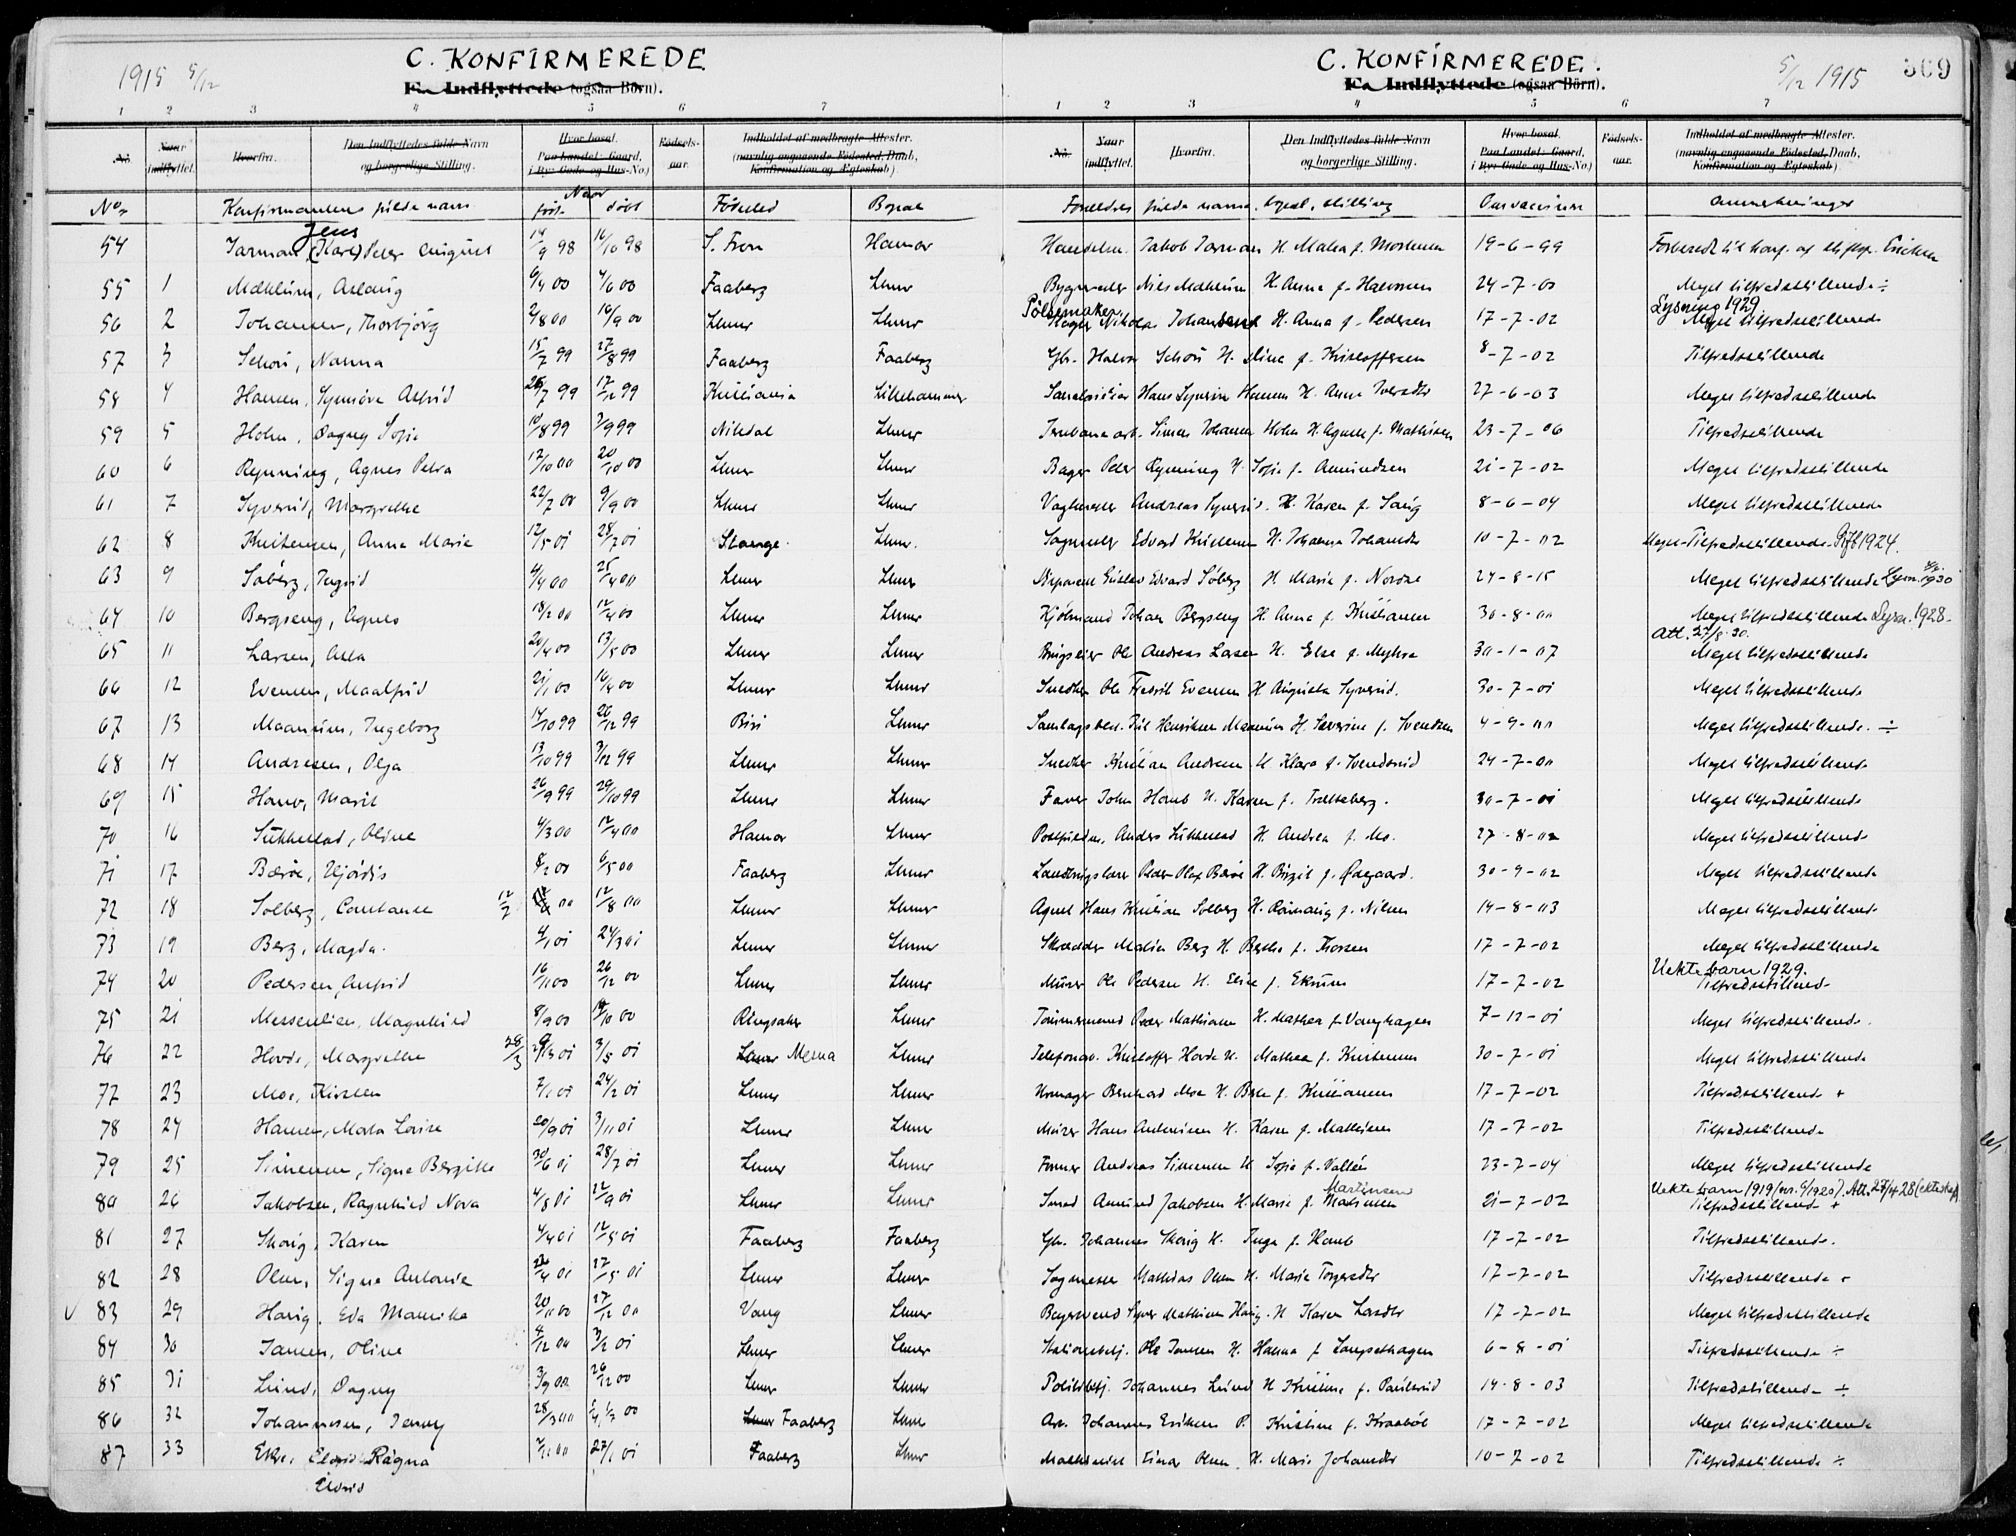 C. KONFIRMEREDE
1915 5/12
F. Indflyttede (ogsaa Börn).
1 2 3 4 5 6 7
No. Naar indflyttet. Hvorfra. Den Indflyttedes fulde Navn og borgerlige Stilling. Hvor bosat. Paa Landet: Gaard, i By: Gade og Hus-No.) Fødsels-aar. Indholdet af medbragte Attester. (navnlig angaaende Fødested, Daab, Konfirmation og Ægteskab)
No. Konfirmantens fulde navn Naar født døbt Fødested Bopæl
Jens
54 (Kare) Peter August 14/9 98 16/10 98 S. Fron Hamar
55 1 Mæhlum, Aslaug 6/4 00 4/6 00 Faaberg Lhmr
56 2 Johansen, Thorbjörg 2/8 00 16/9 00 Lhmr Lhmr
57 3 Schou, Nanna 15/7 99 27/8 99 Faaberg Faaberg
58 4 Hansen, Synnöve Astrid 26/7 99 17/12 99 Kristiania Lillehammer
59 5 Holm, Dagny Sofie 10/8 99 3/9 99 Nittedal Lhmr
60 6 Rynning, Agnes Petra 12/10 00 20/10 00 Lhmr Lhmr
61 7 Syverud, Margrethe 22/7 00 9/9 00 Lhmr Lhmr
62 8 Kristensen, Anna Marie 12/5 01 28/7 01 Stange Lhmr.
63 9 Søberg, Ingrid 4/4 00 25/4 00 Lhmr Lhmr
64 10 Bergseng, Agnes 18/2 00 12/4 00 Lhmr Lhmr
65 11 Larsen, Asta 20/4 00 13/5 00 Lhmr Lhmr
66 12 Evensen, Maalfrid 21/1 00 16/4 00 Lhmr Lhmr
67 13 Maanum, Ingeborg 14/10 99 26/12 99 Biri Lhmr
68 14 Andresen, Olga 13/10 99 3/12 99 Lhmr Lhmr
69 15 Marit 26/9 99 29/10 99 Lhmr Lhmr
70 16 Sukkestad, Oline 4/3 00 12/4 00 Hamar Lhmr
71 17 Bærøe, Hjördis 8/2 00 6/5 00 Faaberg Lhmr
72 18 Solberg, Constance 12/2 00 12/8 00 Lhmr Lhmr
73 19 Berg, Magda. 4/1 01 24/3 01 Lhmr Lhmr
74 20 Pedersen, Anfrid 16/11 00 26/12 00 Lhmr Lhmr
75 21 Messenlien, Magnhild 8/9 00 14/10 00 Ringsaker Lhmr
76 22 Hovde, Margrethe 28/3 01 3/5 01 Lhmr Mesna Lhmr
77 23 Moe, Kirsten 7/1 01 24/2 01 Lhmr Lhmr
78 24 Hansen, Marta Lovise 20/9 01 3/11 01 Lhmr Lhmr
79 25 Simensen, Signe Bergitte 30/6 01 28/7 01 Lhmr Lhmr
80 26 Jakobsen, Ragnhild Nora 4/8 01 22/9 01 Lhmr Lhmr
81 27 Skaug, Karen 4/4 01 12/5 01 Faaberg Faaberg
82 28 Olsen, Signe Antonie 22/4 01 27/5 01 Lhmr Lhmr
83 29 Haug, Eda Mathilde 20/11 00 27/12 00 Vang Lhmr
84 30 Jansen, Oline 8/12 00 3/2 01 Lhmr Lhmr
85 31 Lund, Dagny 3/9 00 26/12 00 Lhmr Lhmr
86 32 Johannesen, Jenny 28/3 00 Lhmr Faaberg Lhmr
87 33 Ekre, Ragna 27/1 01 Faaberg Lhmr
Eldrid
C. KONFIRMEREDE.
5/12 1915
369
F. Indflyttede (ogsaa Börn).
1 2 3 4 5 6 7
No. Naar indflyttet. Hvorfra. Den Indflyttedes fulde Navn og borgerlige Stilling. Hvor bosat. Paa Landet: Gaard, i By: Gade og Hus-No.) Fødsels-aar. Indholdet af medbragte Attester. (navnlig angaaende Fødested, Daab, Konfirmation og Ægteskab)
Forældres fulde navne, bopæl, stilling Om vaccinen Anmerkninger
Handelsm. Jakob H. Mathea f. Mortensen 19-6-99 Forberedt til konf. af
Nils Mæhlum H. Anna f. Halvorsen 24-7-00 Meget tilfredsstillende ÷
Pölsemaker Lysning 1929
Nikolai Johansen H. Anna f. Pedersen 17-7-02 Meget tilfredsstillende
Gbr. Halvor Schou H. Stine f. Kristoffersen 8-7-02 Tilfredsstillende
Hans Syverin Hansen H. Anna 27-6-03 Meget tilfredsstillende
Simen Johansen Holm H. Agnete f. Mathisen 23-7-06 Tilfredsstillende
Bager Peter Rynning H. Sofie f. Amundsen 21-7-02 Meget tilfredsstillende
Vagtmester Andreas Syverud H. Karen f. Haug 8-6-04 Meget tilfredsstillende
Edvard Kristensen H. Johanna Johansdtr 10-7-02 Meget-Tilfredsstillende. Gift 1924.
Gustav Edvard Søberg H. Marie f. Nordse 24-8-15 Meget tilfredsstillende Lysn. 1930
Kjörmand Johan Bergseng H. Anna f. Kristiansen 30-8-00 Meget tilfredsstillende Lysn. 1928.
Att. 27/8 30.
Ole Andreas Larsen H. Else f. Myhre 30-1-07 Meget tilfredsstillende
Snedker Ole Fredrik Evensen H. Augusta Syverud. 30-7-01 Meget tilfredsstillende
Samlagsbest. Henriksen Maanum H. Severine f. Svendsen 4-9-00 Meget tilfredsstillende. ÷
Snedker Kristian Andresen H. Klara f. Svendsrud 24-7-00 Meget tilfredsstillende
Farver John H. Karen f. Tretteberg. 30-7-01 Meget tilfredsstillende
Anders Sukkestad H. Andrea f. Mo. 27-8-02 Meget tilfredsstillende
Peder Olaf Bærøe H. Birgit f. Ødegaard. 30-9-02 Meget tilfredsstillende
Agent Hans Kristian Solberg H. f. Nilsen 14-8-03 Meget tilfredsstillende
Skrædder Martin Berg H. Berthe f. Thorsen 17-7-02 Meget tilfredsstillende
Uekte barn 1929.
Murer Ole Pedersen H. Eline f. Ekrum 17-7-02 Tilfredsstillende
Tömmermand Peder Mathisen H. Mathea f. Vanghagen 7-12-01 Meget tilfredsstillende.
Telefonarb. Kristoffer Hovde H. Mathea f. Kristensen 30-7-01 Meget tilfredsstillende
Urmager Bernhard Moe H. Berthe f. Kristiansen 17-7-02 Tilfredsstillende +
Murer Hans Andersen H. Karen f. Mathisen 17-7-02 Tilfredsstillende
Former Andreas Simensen H. Sofie f. Vallén 23-7-04 Meget tilfredsstillende
Martinsen Uekte barn 1919 (nr. 9/1920). Att. 27/4 28 (ekteskap)
Smed Amund Jakobsen H. Marie f. 21-7-02 Tilfredsstillende +
Gbr. Johannes Skaug H. Inga f. 17-7-02 Tilfredsstillende.
Sagmester Mathias Olsen H. Marie Torgersdtr 17-7-02 Tilfredsstillende +
Syver Mathisen Haug H. Karen Larsdtr 17-7-02 Meget tilfredsstillende
Stationsbetj. Ole Jansen H. Hanna f. Langsethagen 6-8-01 Tilfredsstillende ÷
Politibetj. Johannes Lund H. Kristine f. Paulsrud 14-8-03 Tilfredsstillende ÷
Arb. Johannes Eriksen P. Kristine f. Kraabøl 17-7-02 Meget tilfredsstillende
Einar Olsen H. Marie Johansdtr 10-7-02 Tilfredsstillende ÷